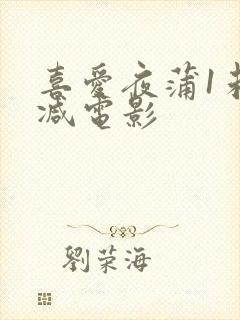 喜愛夜蒲1
减電影
劉荣海